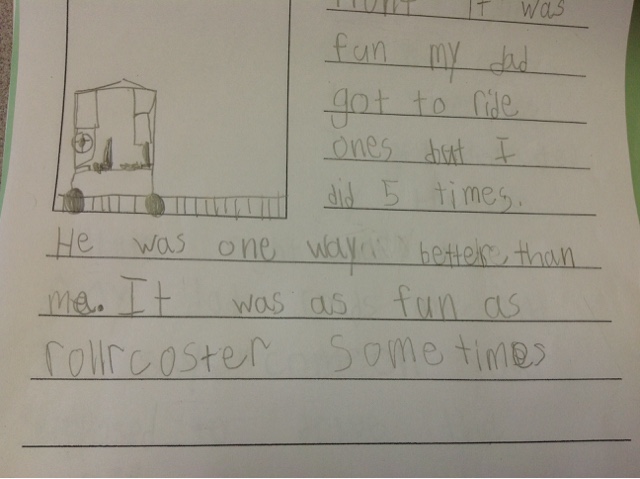 It was
fun my dad
got to ride
ones but I
did 5 times.
He was one way better than
me. It was as fun as
rollrcoster sometimes